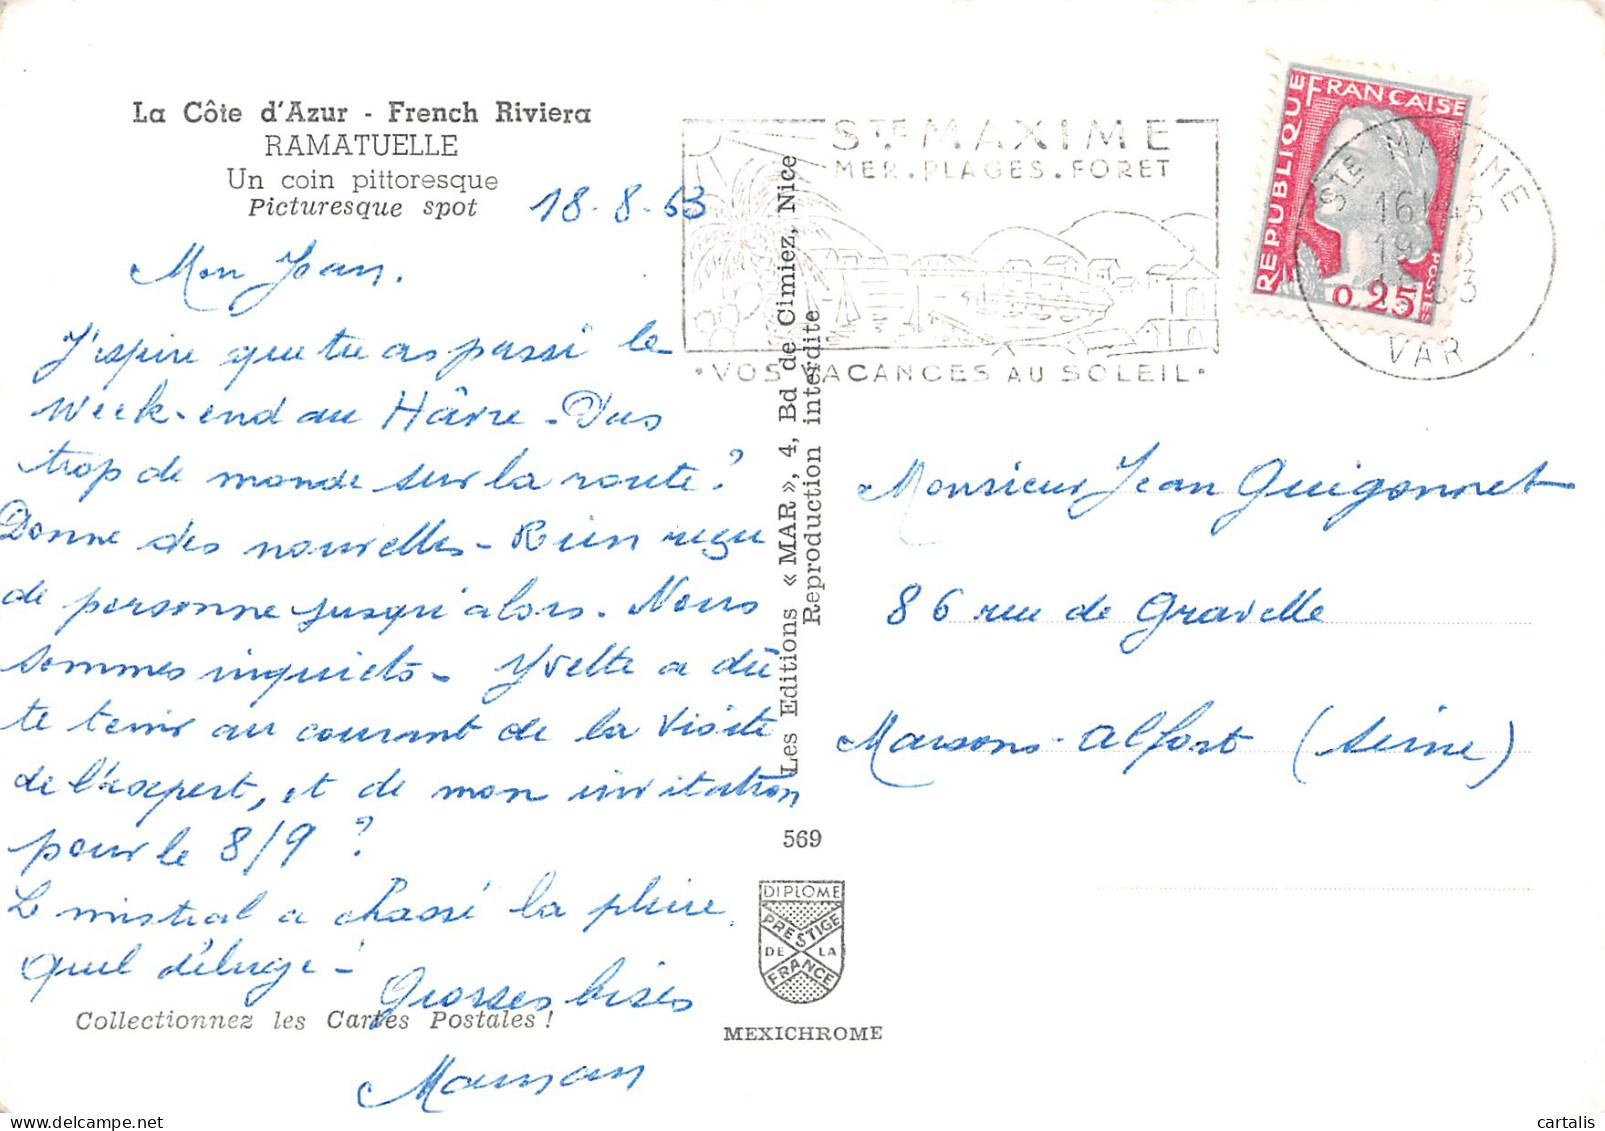 La Côte d'Azur - French Riviera
RAMATUELLE
Un coin pittoresque
Picturesque spot
18-8-63
Mon Jean.
J'espère que tu as passé le
week-end au Hâvre - Pas
trop de monde sur la route?
Donne des nouvelles - Rien reçu
de personne jusqu'alors. Nous
sommes inquiets - Yvette a dû
te tenir au courant de la visite
de l'expert, et de mon invitation
pour le 8/9 ?
Le mistral a chassé la pluie.
Quel déluge !
Grosses bises
Maman
Collectionnez les Cartes Postales !
Les Editions « MAR », 4, Bd de Cimiez, Nice
Reproduction interdite
569
DIPLOME
PRESTIGE
DE LA
FRANCE
MEXICHROME
STE MAXIME
MER.PLAGES.FORET
•VOS VACANCES AU SOLEIL•
REPUBLIQUE FRANÇAISE
POSTES
0.25
STE MAXIME
16H45
VAR
Monsieur Jean Guigonnet
86 rue de Gravelle
Maisons-Alfort (Seine)
cartalis